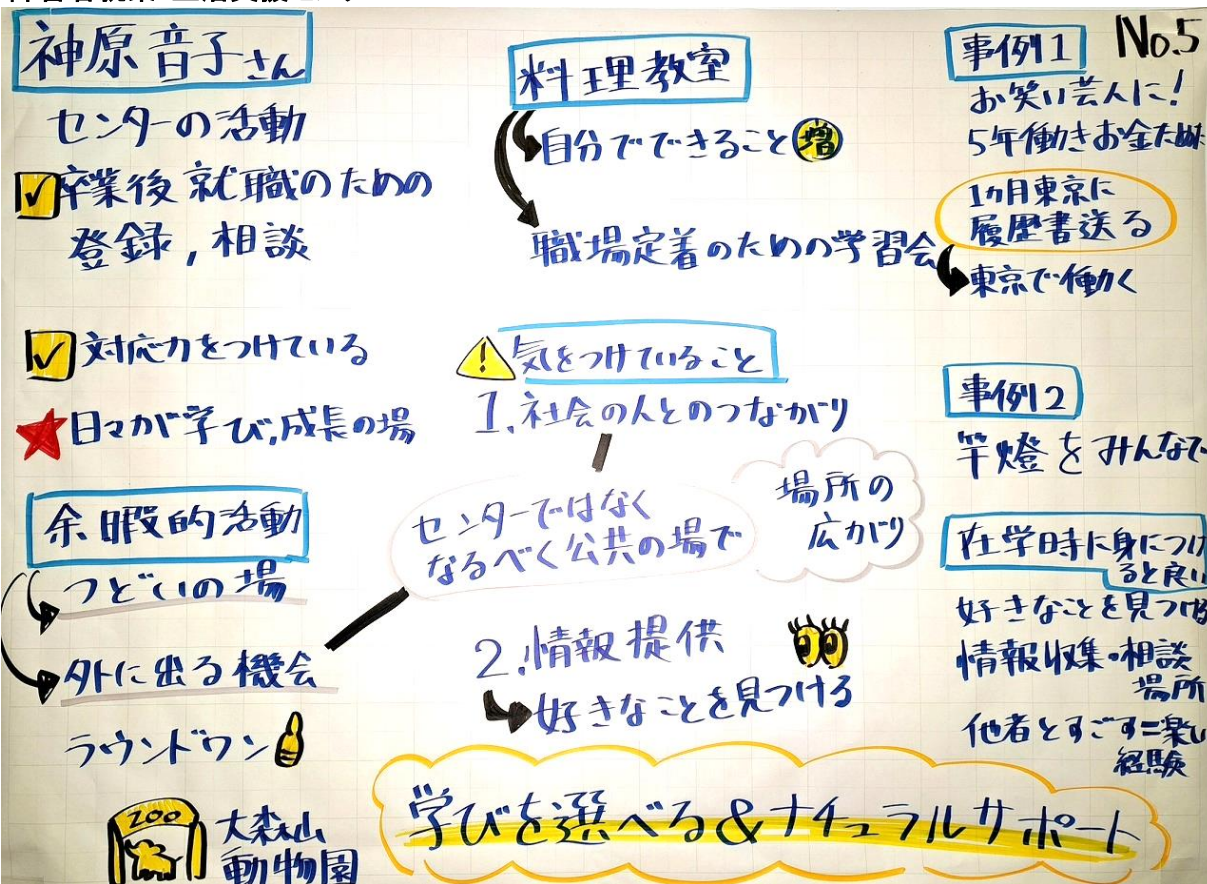 神原音子さん
センターの活動
卒業後就職のための
登録,相談
対応力をつけている
日々が学び,成長の場
余暇的活動
つどいの場
外に出る機会
ラウンドワン
ZOO
大森山
動物園
料理教室
自分でできること増
職場定着のための学習会
気をつけていること
1.社会の人とのつながり
センターではなく
なるべく公共の場で
場所の
広がり
2.情報提供
好きなことを見つける
学びを選べる&ナチュラルサポート
No.5
事例1
お笑い芸人に!
5年働きお金ため
1ヵ月東京に
履歴書送る
東京で働く
事例2
竿燈をみんなで
在学時に身につけ
ると良い
好きなことを見つける
情報収集・相談
場所
他者とすごす=楽しい
経験